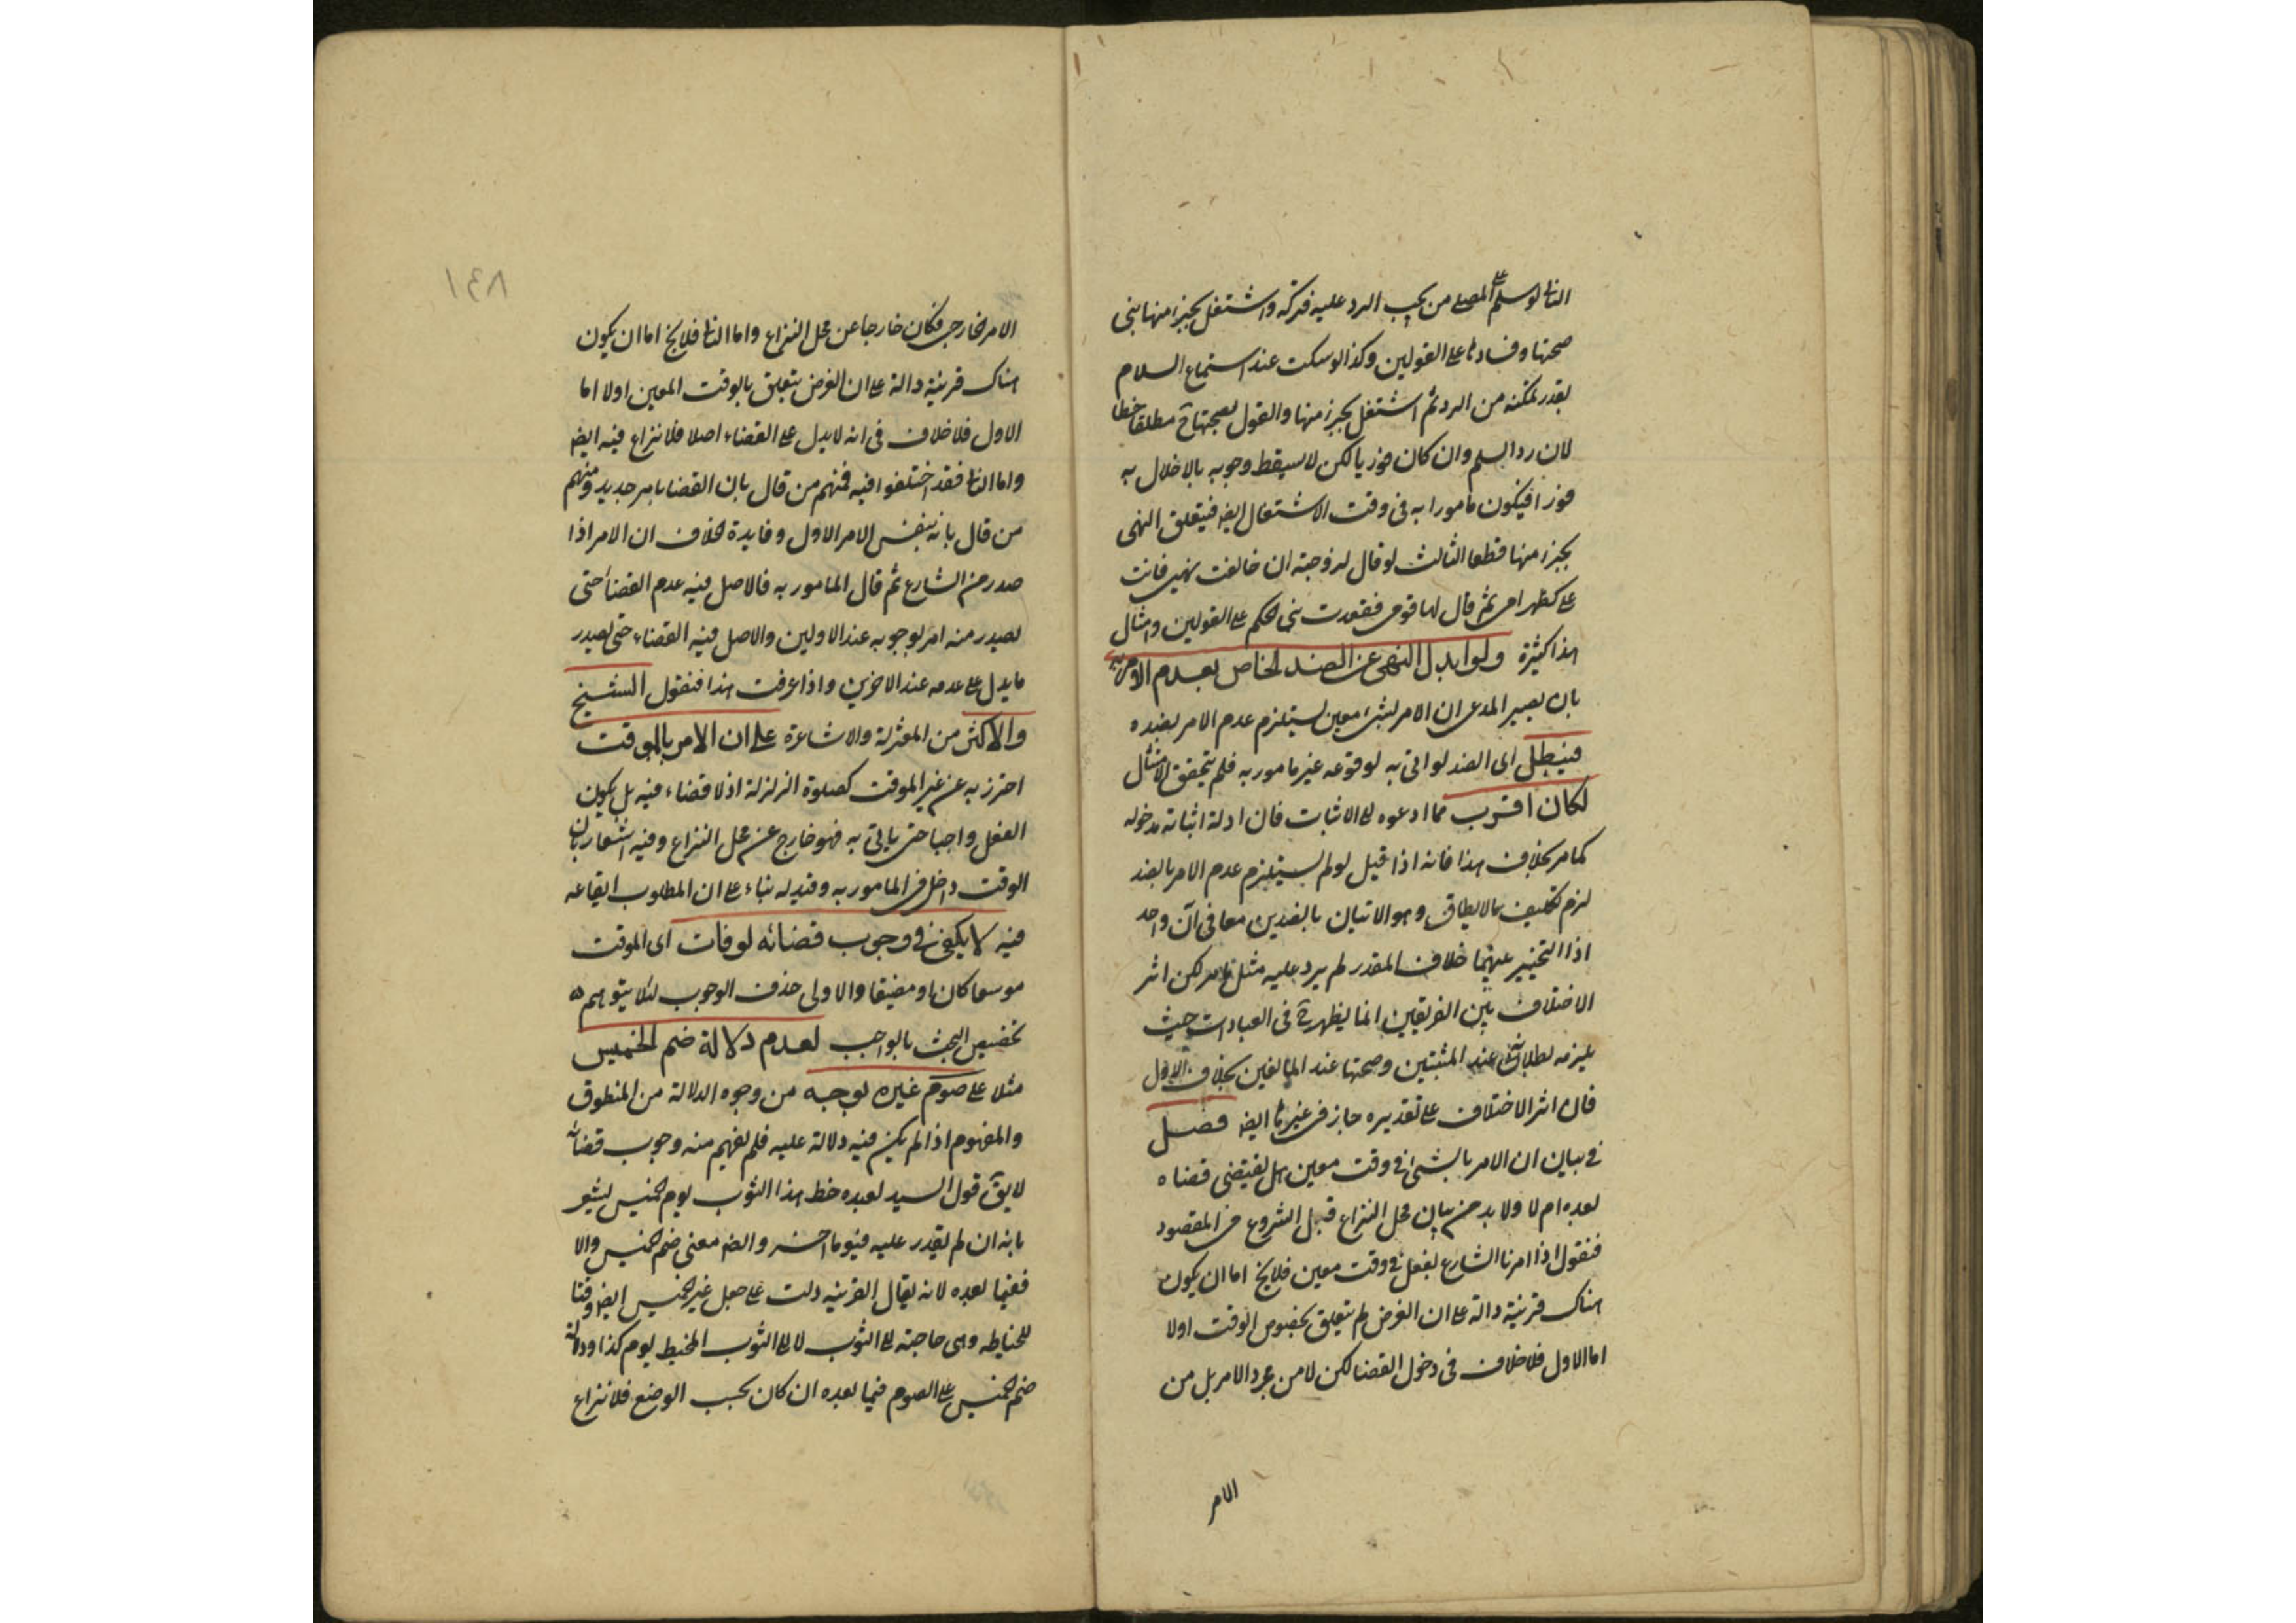 الثانى لو سلم على المصلى من يجب الرد عليه فتركه واشتغل بجزء منها بنى
صحتها وفسادها على القولين وكذا لو سكت عند استماع السلام
بقدر تمكنه من الرد ثم اشتغل بجزء منها والقول بصحتها ح مطلقا خطا
لان رد السلم وان كان فوريا لكن لا يسقط وجوبه بالاخلال به
فورا فيكون مامورا به فى وقت الاشتغال ايضا فيتعلق النهى
بجزء منها قطعا الثالث لو قال لزوجته ان خالفت نهيى فانت
على كظهر امى ثم قال لها قومى فقعدت بنى الحكم على القولين وامثال
هذا كثيرة ولو ابدل النهى عن الضد الخاص بعدم الامر به
بان يصير المدعى ان الامر بشىء معين يستلزم عدم الامر بضده
فيبطل اى الضد لو اتى به لوقوعه غير مامور به فلم يتحقق الامتثال
لكان اقرب مما ادعوه الى الاثبات فان ادلة اثباته مدخوله
كما مر بخلاف هذا فانه اذا قيل لو لم يستلزم عدم الامر بالضد
لزم تكليف ما لا يطاق وهو الاتيان بالضدين معا فى آن واحد
اذ التخيير بينهما خلاف المقدر لم يرد عليه مثل ما مر لكن اثر
الاختلاف بين الفريقين انما يظهر ح فى العبادات حيث
يلزمه بطلانها عند المثبتين وصحتها عند المانعين بخلاف الاول
فان اثر الاختلاف على تقديره جاز فى غيرها ايضا فصل
فى بيان ان الامر بالشىء فى وقت معين هل يقتضى قضاه
بعده ام لا ولا بد من بيان محل النزاع قبل الشروع فى المقصود
فنقول اذا امرنا الشارع بفعل فى وقت معين فلا يخ اما ان يكون
هناك قرينة دالة على ان الغرض لم يتعلق بخصوص الوقت اولا
اما الاول فلا خلاف فى دخول القضا لكن لا من مجرد الامر بل من
الامر
١٤٨
الامر الخارجى فكان خارجا عن محل النزاع واما الثانى فلا يخ اما ان يكون
هناك قرينة دالة على ان الغرض يتعلق بالوقت المعين اولا اما
الاول فلا خلاف فى انه لا يدل على القضاء اصلا فلا نزاع فيه ايضا
واما الثانى فقد اختلفوا فيه فمنهم من قال بان القضا بامر جديد ومنهم
من قال بانه بنفس الامر الاول وفايدة الخلاف ان الامر اذا
صدر من الشارع ثم قال المامور به فالاصل فيه عدم القضاء حتى
يصدر منه امر بوجوبه عند الاولين والاصل فيه القضاء حتى يصدر
ما يدل على عدمه عند الاخرين واذا عرفت هذا فنقول الشيخ
والاكثر من المعتزلة والاشاعرة على ان الامر بالموقت
احترز به عن غير الموقت كصلوة الزلزلة اذ لا قضاء فيه بل يكون
الفعل واجبا حتى ياتى به فهو خارج عن محل النزاع وفيه اشعار بان
الوقت داخل فى المامور به وقيد له بناء على ان المطلوب ايقاعه
فيه لا يكفى فى وجوب قضائه لو فات اى الموقت
موسعا كان او مضيقا والاولى حذف الوجوب لئلا يتوهم
تخصيص البحث بالواجب لعدم دلالة صم الخميس
مثلا على صوم غيره بوجه من وجوه الدلالة من المنطوق
والمفهوم اذا لم يكن فيه دلالة عليه فلم يفهم منه وجوب قضائه
لا يق قول السيد لعبده خط هذا الثوب يوم الخميس يشعر
بانه ان لم يقدر عليه فيوما اخر وايضا معنى صم الخميس والا
فعينا بعده لانه يقال القرينة دلت على جعل غير الخميس ايضا وقتا
للخياطه وهى حاجته الى الثوب لا الى الثوب المخيط يوم كذا ودلالة
صم الخميس على الصوم فيما بعده ان كان بحسب الوضع فلا نزاع